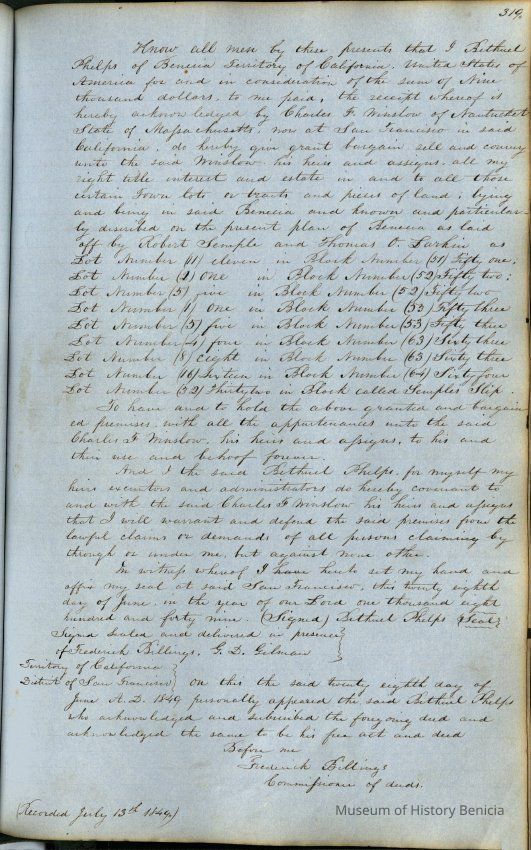 319
Know all men by these presents that I Bethuel
Phelps of Benicia Territory of California, United States of
America for and in consideration of the sum of Nine
thousand dollars, to me paid, the receipt whereof is
hereby acknowledged by Charles F. Winslow of Nantucket
State of Massachusetts, now at San Francisco in said
California, do hereby give grant bargain sell and convey
unto the said Winslow his heirs and assigns, all my
right title interest and estate in and to all those
certain Town lots or tracts and pieces of land, lying
and being in said Benicia and known and particular
ly described on the present plan of Benicia as laid
off by Robert Semple and Thomas O. Larkin as
Lot Number (11) eleven in Block Number (51) Fifty one,
Lot Number (1) One in Block Number (52) Fifty two;
Lot Number (5) five in Block Number (52) Fifty two
Lot Number (1) One in Block Number (53) Fifty three
Lot Number (5) five in Block Number (53) Fifty three
Lot Number (4) four in Block Number (63) Sixty three
Lot Number (8) eight in Block Number (63) Sixty three
Lot Number (16) Sixteen in Block Number (64) Sixty four
Lot Number (32) Thirty two in Block called Semples Slip
To have and to hold the above granted and bargain
ed premises, with all the appurtenances unto the said
Charles F Winslow, his heirs and assigns, to his and
their use and behoof forever.
And I the said Bethuel Phelps, for myself my
heirs executors and administrators do hereby covenant to
and with the said Charles F Winslow his heirs and assigns
that I will warrant and defend the said premises from the
lawful claims or demands of all persons claiming by
through or under me, but against none other.
In witness whereof I have hereto set my hand and
affix my seal at said San Francisco, this twenty eighth
day of June, in the year of our Lord one thousand eight
hundred and forty nine. (Signed) Bethuel Phelps (Seal)
Signed sealed and delivered in presence
of Frederick Billings, G. D. Gilman
Territory of California
District of San Francisco } On this the said twenty eighth day of
June A.D. 1849 personally appeared the said Bethuel Phelps
who acknowledged and subscribed the foregoing deed and
acknowledged the same to be his free act and deed
Before me
Frederick Billings
Commissioner of deeds.
(Recorded July 13th 1849)
Museum of History Benicia